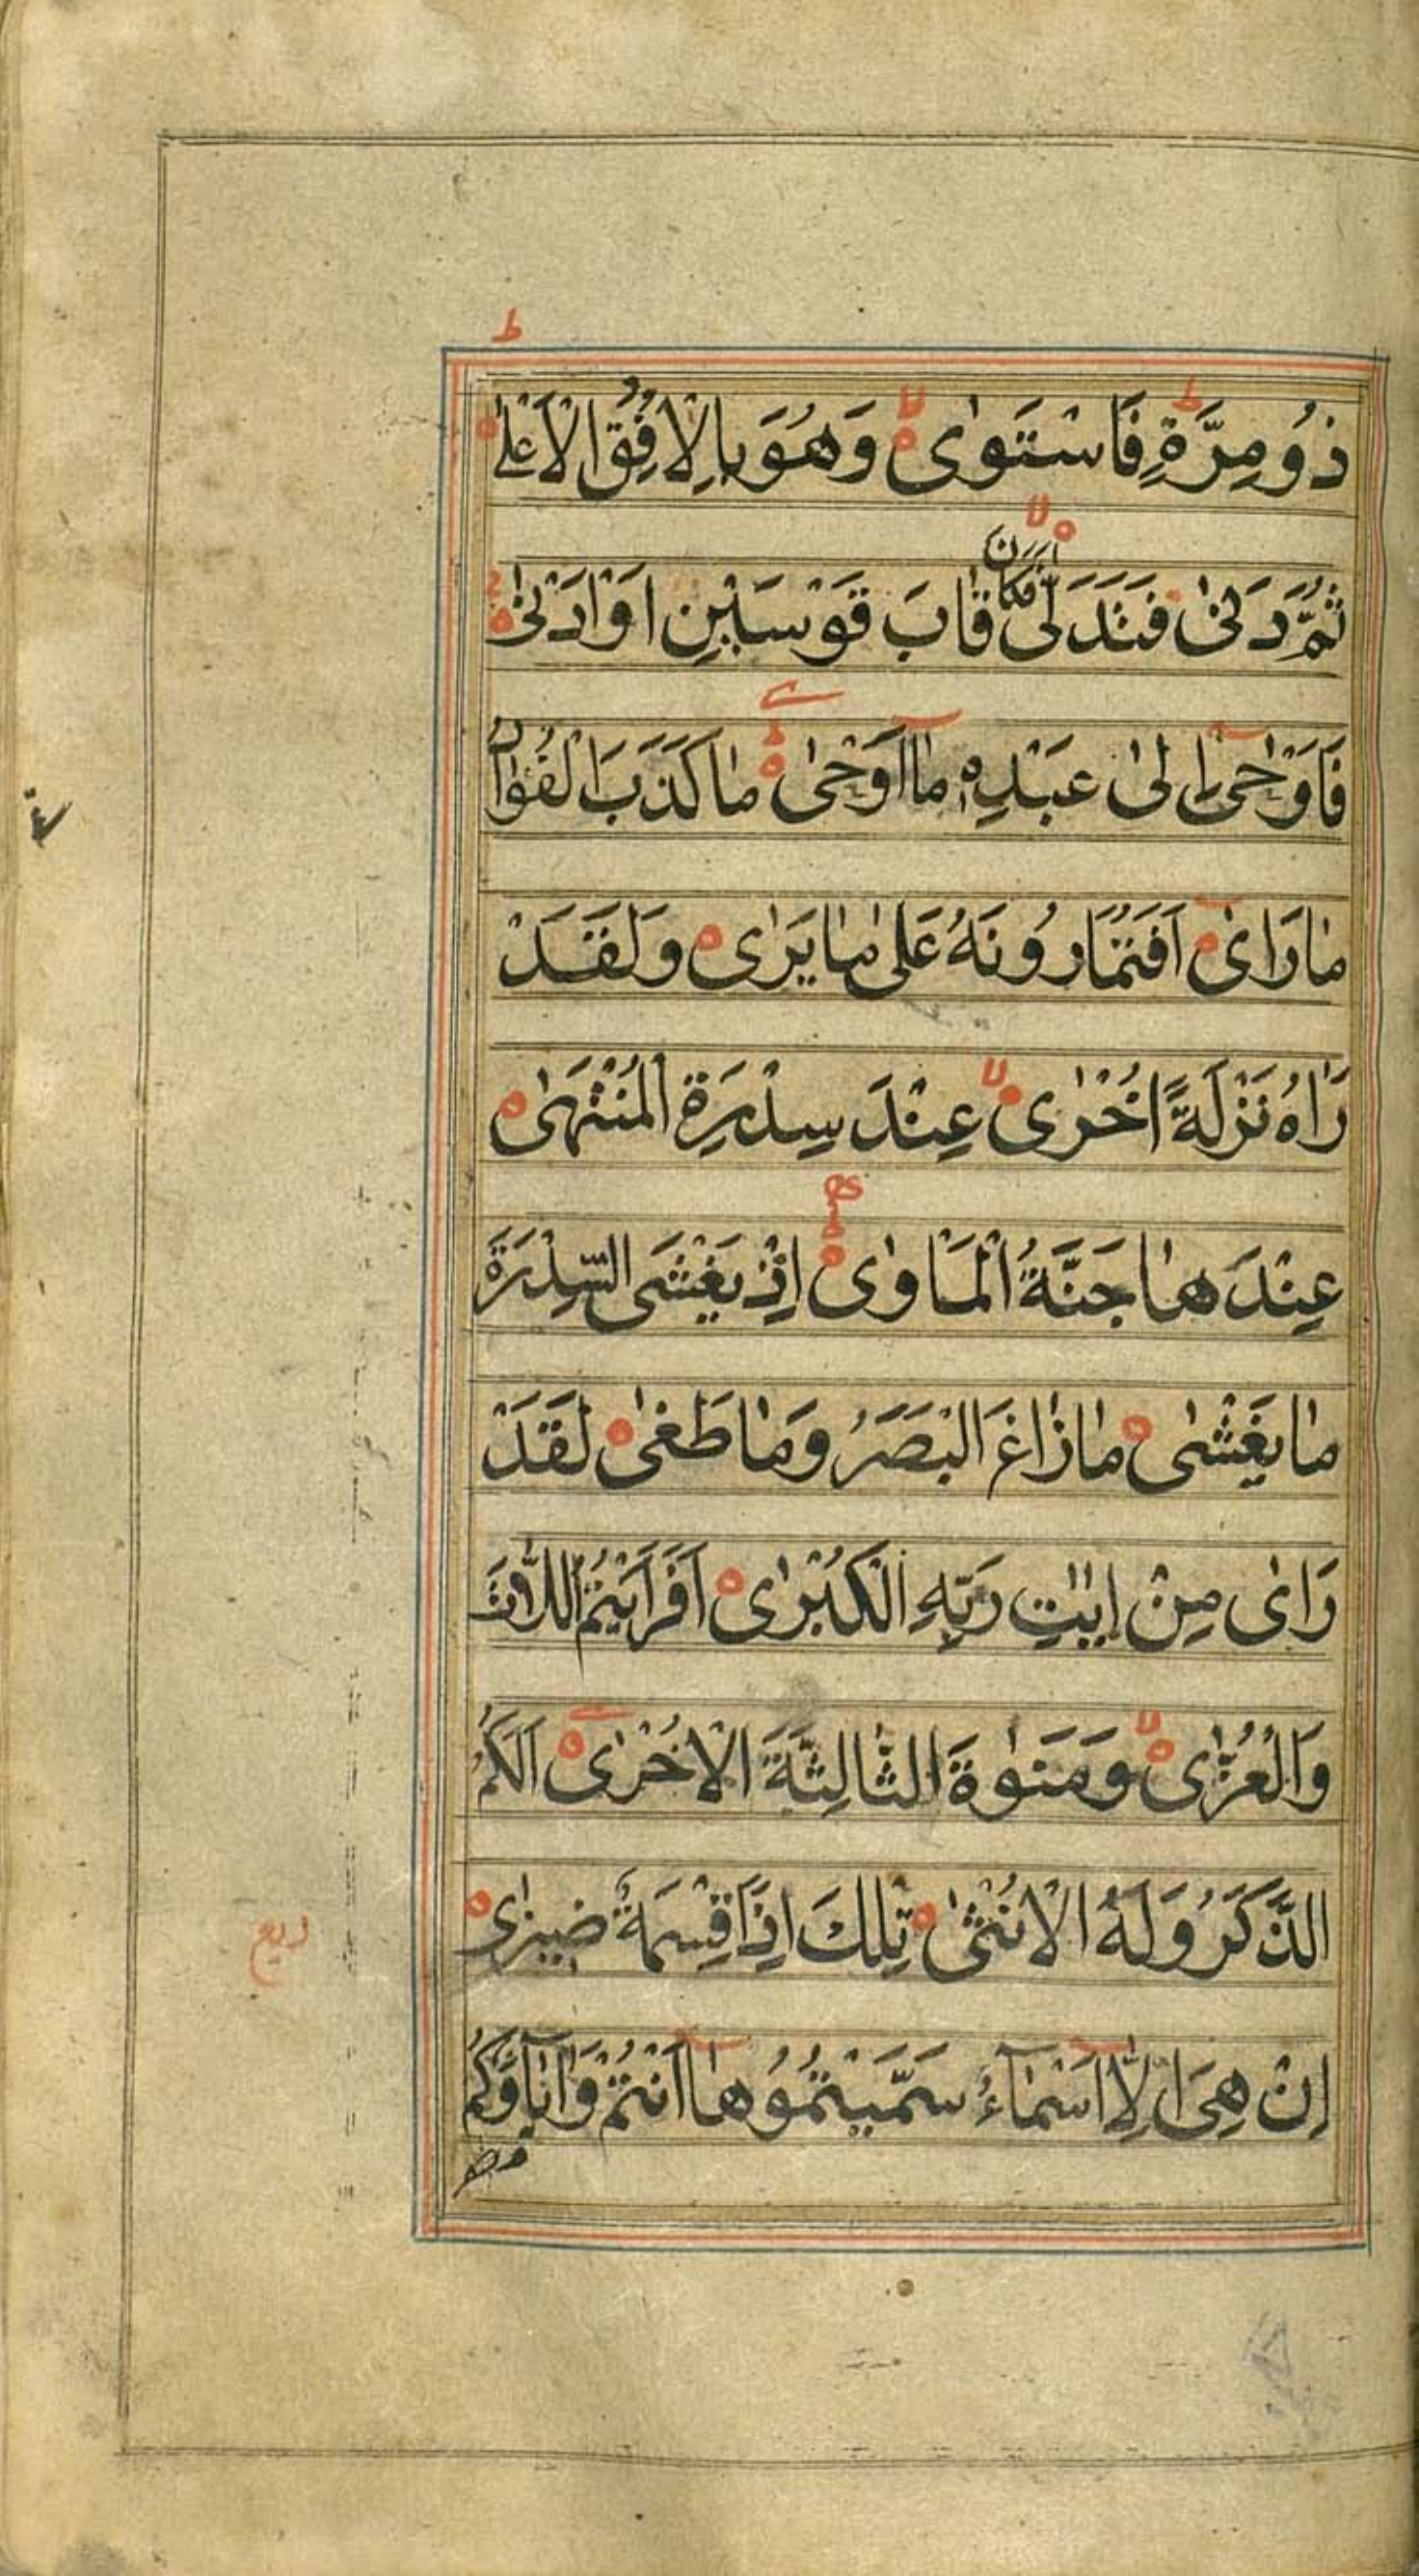 ذُو مِرَّةٍ فَاسْتَوٰى وَهُوَ بِالْاُفُقِ الْاَعْلٰى
ثُمَّ دَنٰى فَتَدَلّٰى فَكَانَ قَابَ قَوْسَيْنِ اَوْ اَدْنٰى
فَاَوْحٰى اِلٰى عَبْدِهٖ مَا اَوْحٰى مَا كَذَبَ الْفُؤَادُ
مَا رَاٰى اَفَتُمَارُونَهُ عَلٰى مَا يَرٰى وَلَقَدْ
رَاٰهُ نَزْلَةً اُخْرٰى عِنْدَ سِدْرَةِ الْمُنْتَهٰى
عِنْدَهَا جَنَّةُ الْمَاْوٰى اِذْ يَغْشَى السِّدْرَةَ
مَا يَغْشٰى مَا زَاغَ الْبَصَرُ وَمَا طَغٰى لَقَدْ
رَاٰى مِنْ اٰيٰتِ رَبِّهِ الْكُبْرٰى اَفَرَاَيْتُمُ اللّٰاتَ
وَالْعُزّٰى وَمَنٰوةَ الثَّالِثَةَ الْاُخْرٰى اَلَكُمُ
الذَّكَرُ وَلَهُ الْاُنْثٰى تِلْكَ اِذًا قِسْمَةٌ ضِيزٰى
ربع
اِنْ هِيَ اِلَّا اَسْمَاءٌ سَمَّيْتُمُوهَا اَنْتُمْ وَاٰبَاؤُكُمْ